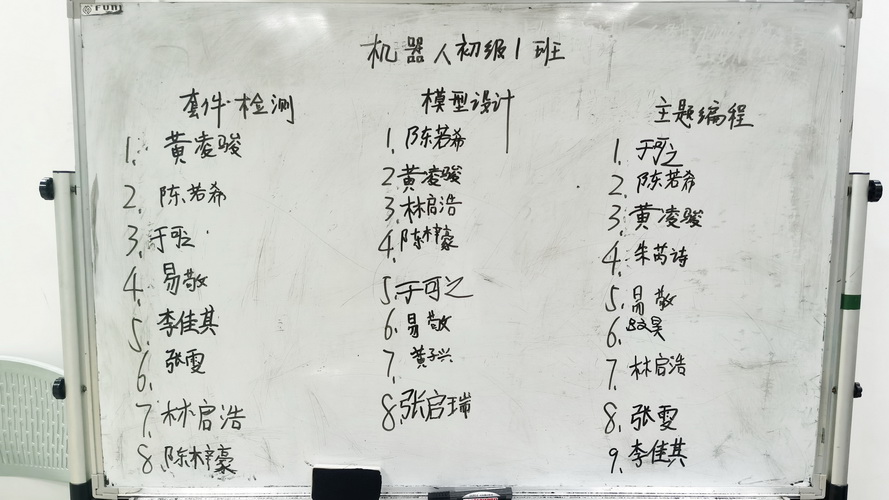 FUNI
机器人初级1班
套件检测
1. 黄凌骏
2. 陈若希
3. 于可之
4. 易敬
5. 李佳其
6. 张雯
7. 林启浩
8. 陈梓豪
模型设计
1. 陈若希
2 黄凌骏
3. 林启浩
4. 陈梓豪
5. 于可之
6. 易敬
7. 黄子兴
8. 张启瑞
主题编程
1. 于可之
2. 陈若希
3. 黄凌骏
4. 朱芮诗
5. 易敬
6.
7. 林启浩
8. 张雯
9. 李佳其